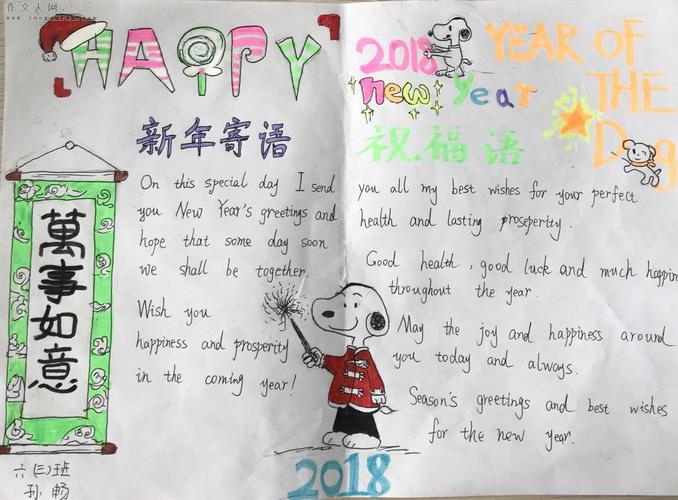 作文人网
HAPPY
2018
new year
YEAR OF
THE
Dog
新年寄语
On this special day I send
you New Year's greetings and
hope that some day soon
we shall be together.
Wish you
happiness and prosperity
in the coming year!
祝福语
you all my best wishes for your perfect
health and lasting proseperity.
Good health, good luck and much happin
throughout the year.
May the joy and happiness around
you today and always.
Season's greetings and best wishes
for the new year.
萬事如意
2018
六(三)班
孙畅